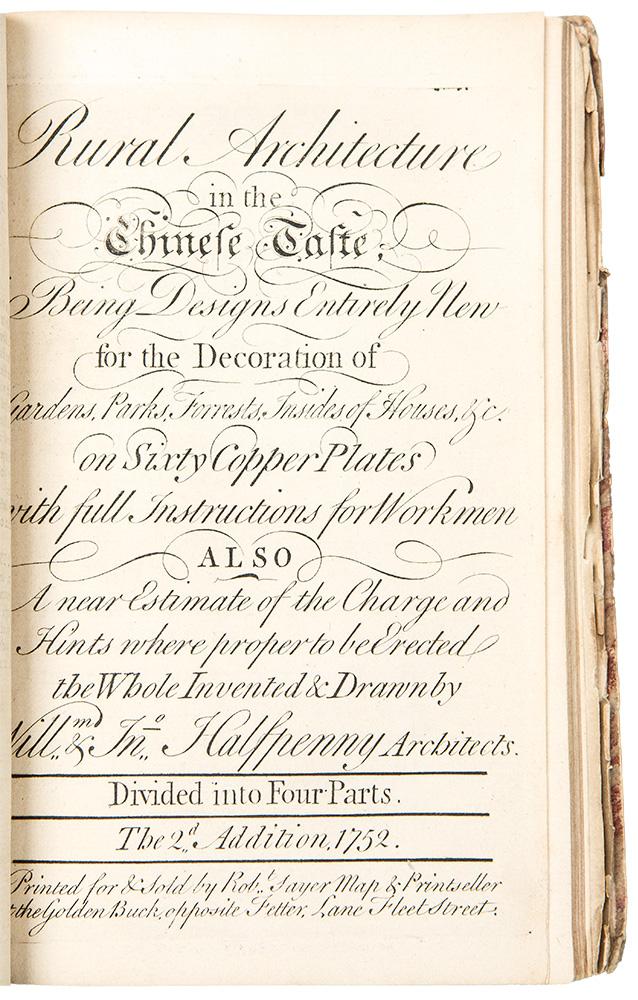 Rural Architecture
in the
Chineſe Taſte,
Being Designs Entirely New
for the Decoration of
Gardens, Parks, Forrests, Insides of Houses, &c.
on Sixty Copper Plates
with full Instructions for Workmen
ALSO
A near Estimate of the Charge and
Hints where proper to be Erected
the Whole Invented & Drawn by
Will.m & Jn.o Halfpenny Architects.
Divided into Four Parts.
The 2.d Addition, 1752.
Printed for & Sold by Rob.t Sayer Map & Printseller
at the Golden Buck, opposite Fetter, Lane Fleet Street.